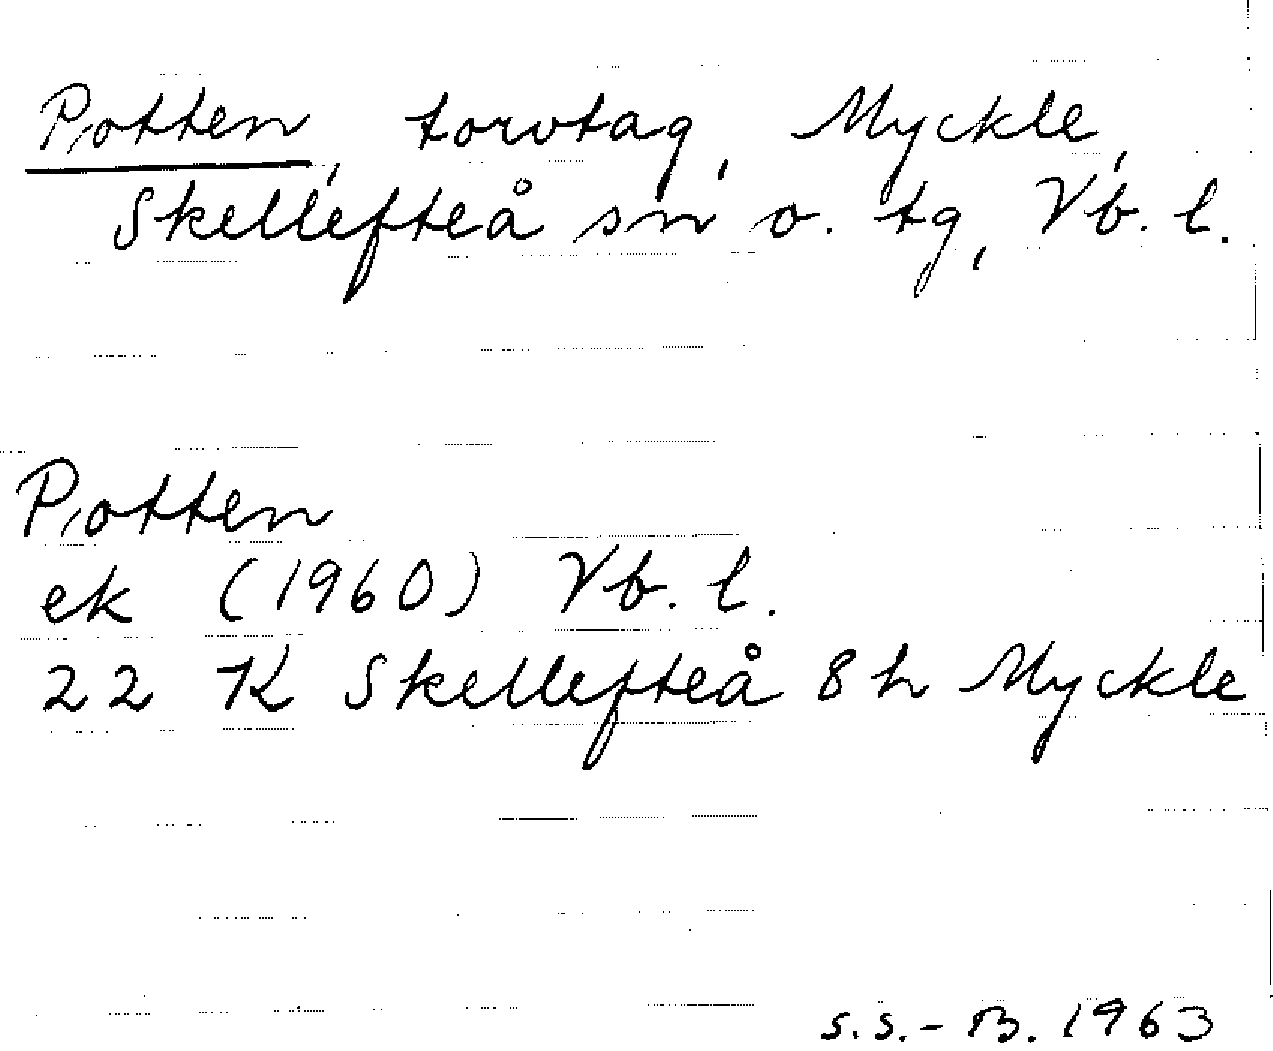 Potten, torvtag, Myckle,
Skellefteå sn o. tg, Vb. l.
Potten
ek (1960) Vb. l.
22 K Skellefteå 8 h Myckle
S.S.-B. 1963